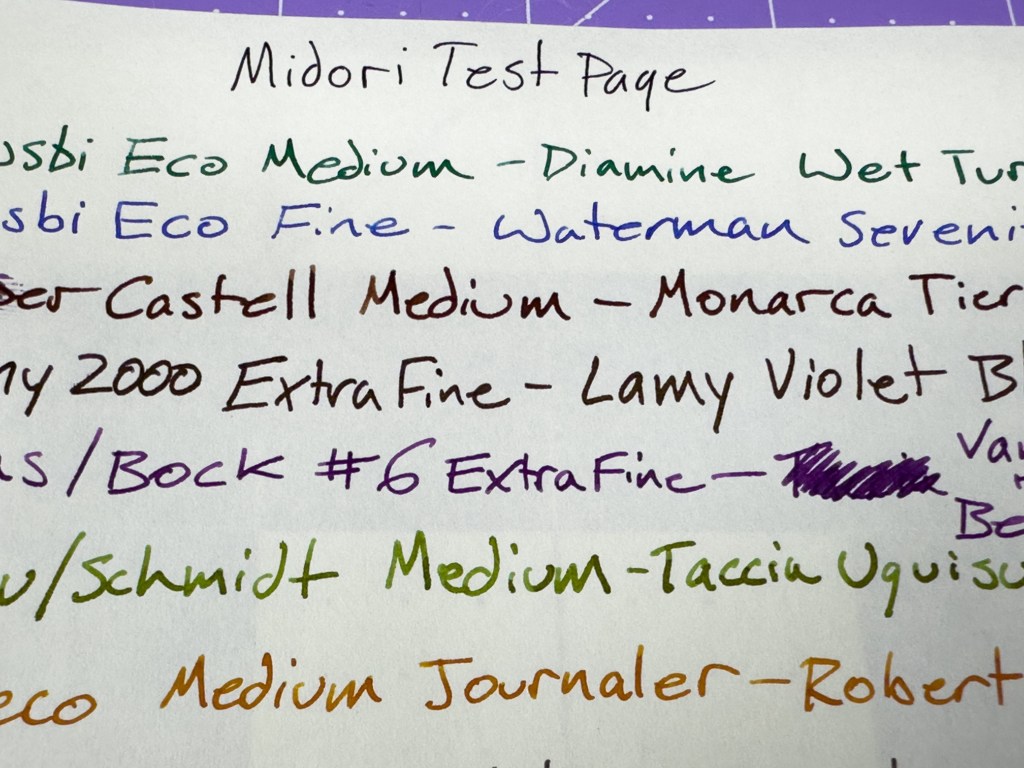 Midori Test Page
usbi Eco Medium - Diamine Wet Tur
sbi Eco Fine - Waterman Sereni
ber Castell Medium - Monarca Tier
my 2000 Extra Fine - Lamy Violet B
as / Bock #6 Extra Fine - Van
Be
u/Schmidt Medium - Taccia Uguisu
eco Medium Journaler - Robert